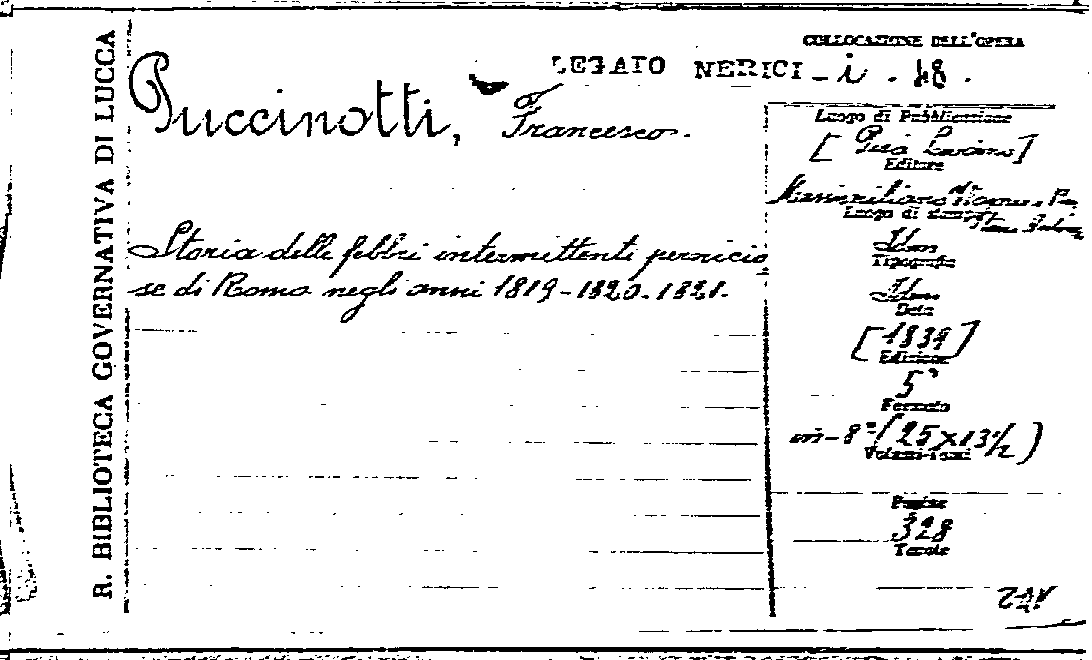 R. BIBLIOTECA GOVERNATIVA DI LUCCA
COLLOCAZIONE DELL'OPERA
LEGATO NERICI - i . 48 .
Puccinotti, Francesco.
Storia delle febbri intermittenti pernicio
se di Roma negli anni 1819-1820-1821.
Luogo di Pubblicazione
[
Editore
Massimiliano
Luogo di stampa
Idem
Tipografia
Idem
Data
[1839]
Edizione
5ª
Formato
in-8º (25 x 13½)
Volumi-tomi
Pagine
328
Tavole